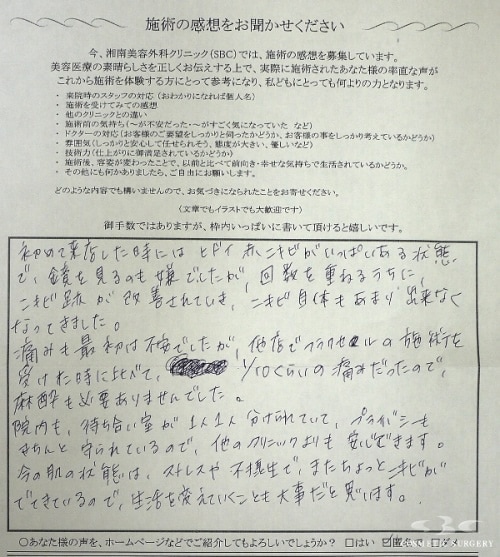 施術の感想をお聞かせください
今、湘南美容外科クリニック(SBC)では、施術の感想を募集しています。
美容医療の素晴らしさを正しくお伝えする上で、実際に施術されたあなた様の率直な声が
これから施術を体験する方にとって参考になり、私どもにとっても何よりの力となります。
・ 来院時のスタッフの対応(おわかりになれば個人名)
・ 施術を受けてみての感想
・ 他のクリニックとの違い
・ 施術前の気持ち(~が不安だった・~がすごく気になっていた など)
・ ドクターの対応(お客様のご要望をしっかりと伺ったかどうか、お客様の事をしっかり考えているかどうか)
・ 雰囲気(しっかりと安心して任せられそう、態度が大きい、優しいなど)
・ 技術力(仕上がりに御満足されているかどうか)
・ 施術後、容姿が変わったことで、以前と比べて前向き・幸せな気持ちで生活されているかどうか。
・ その他にも何かありましたら、ご自由にお願いします。
どのような内容でも構いませんので、お気づきになられたことをお寄せください。
(文章でもイラストでも大歓迎です)
御手数ではありますが、枠内いっぱいに書いて頂けると嬉しいです。
初めて来店した時には ヒドイ 赤ニキビがいっぱいある状態
で、鏡を見るのも嫌でしたが、回数を重ねるうちに、
ニキビ跡が改善されていき、ニキビ自体もあまり出来なく
なってきました。
痛みも最初は不安でしたが、他店でフラクセルの施術を
受けた時に比べて、 1/10くらいの痛みだったので、
麻酔も必要ありませんでした。
院内も、待ち合い室が1人1人分けられていて、プライバシーも
きちんと守られているので、他のクリニックよりも安心できます。
今の肌の状態は、ストレスや不摂生で、またちょっとニキビが
でてきているので、生活を変えていくことも大事だと思います。
○あなた様の声を、ホームページなどでご紹介してもよろしいでしょうか? □はい ☑匿名